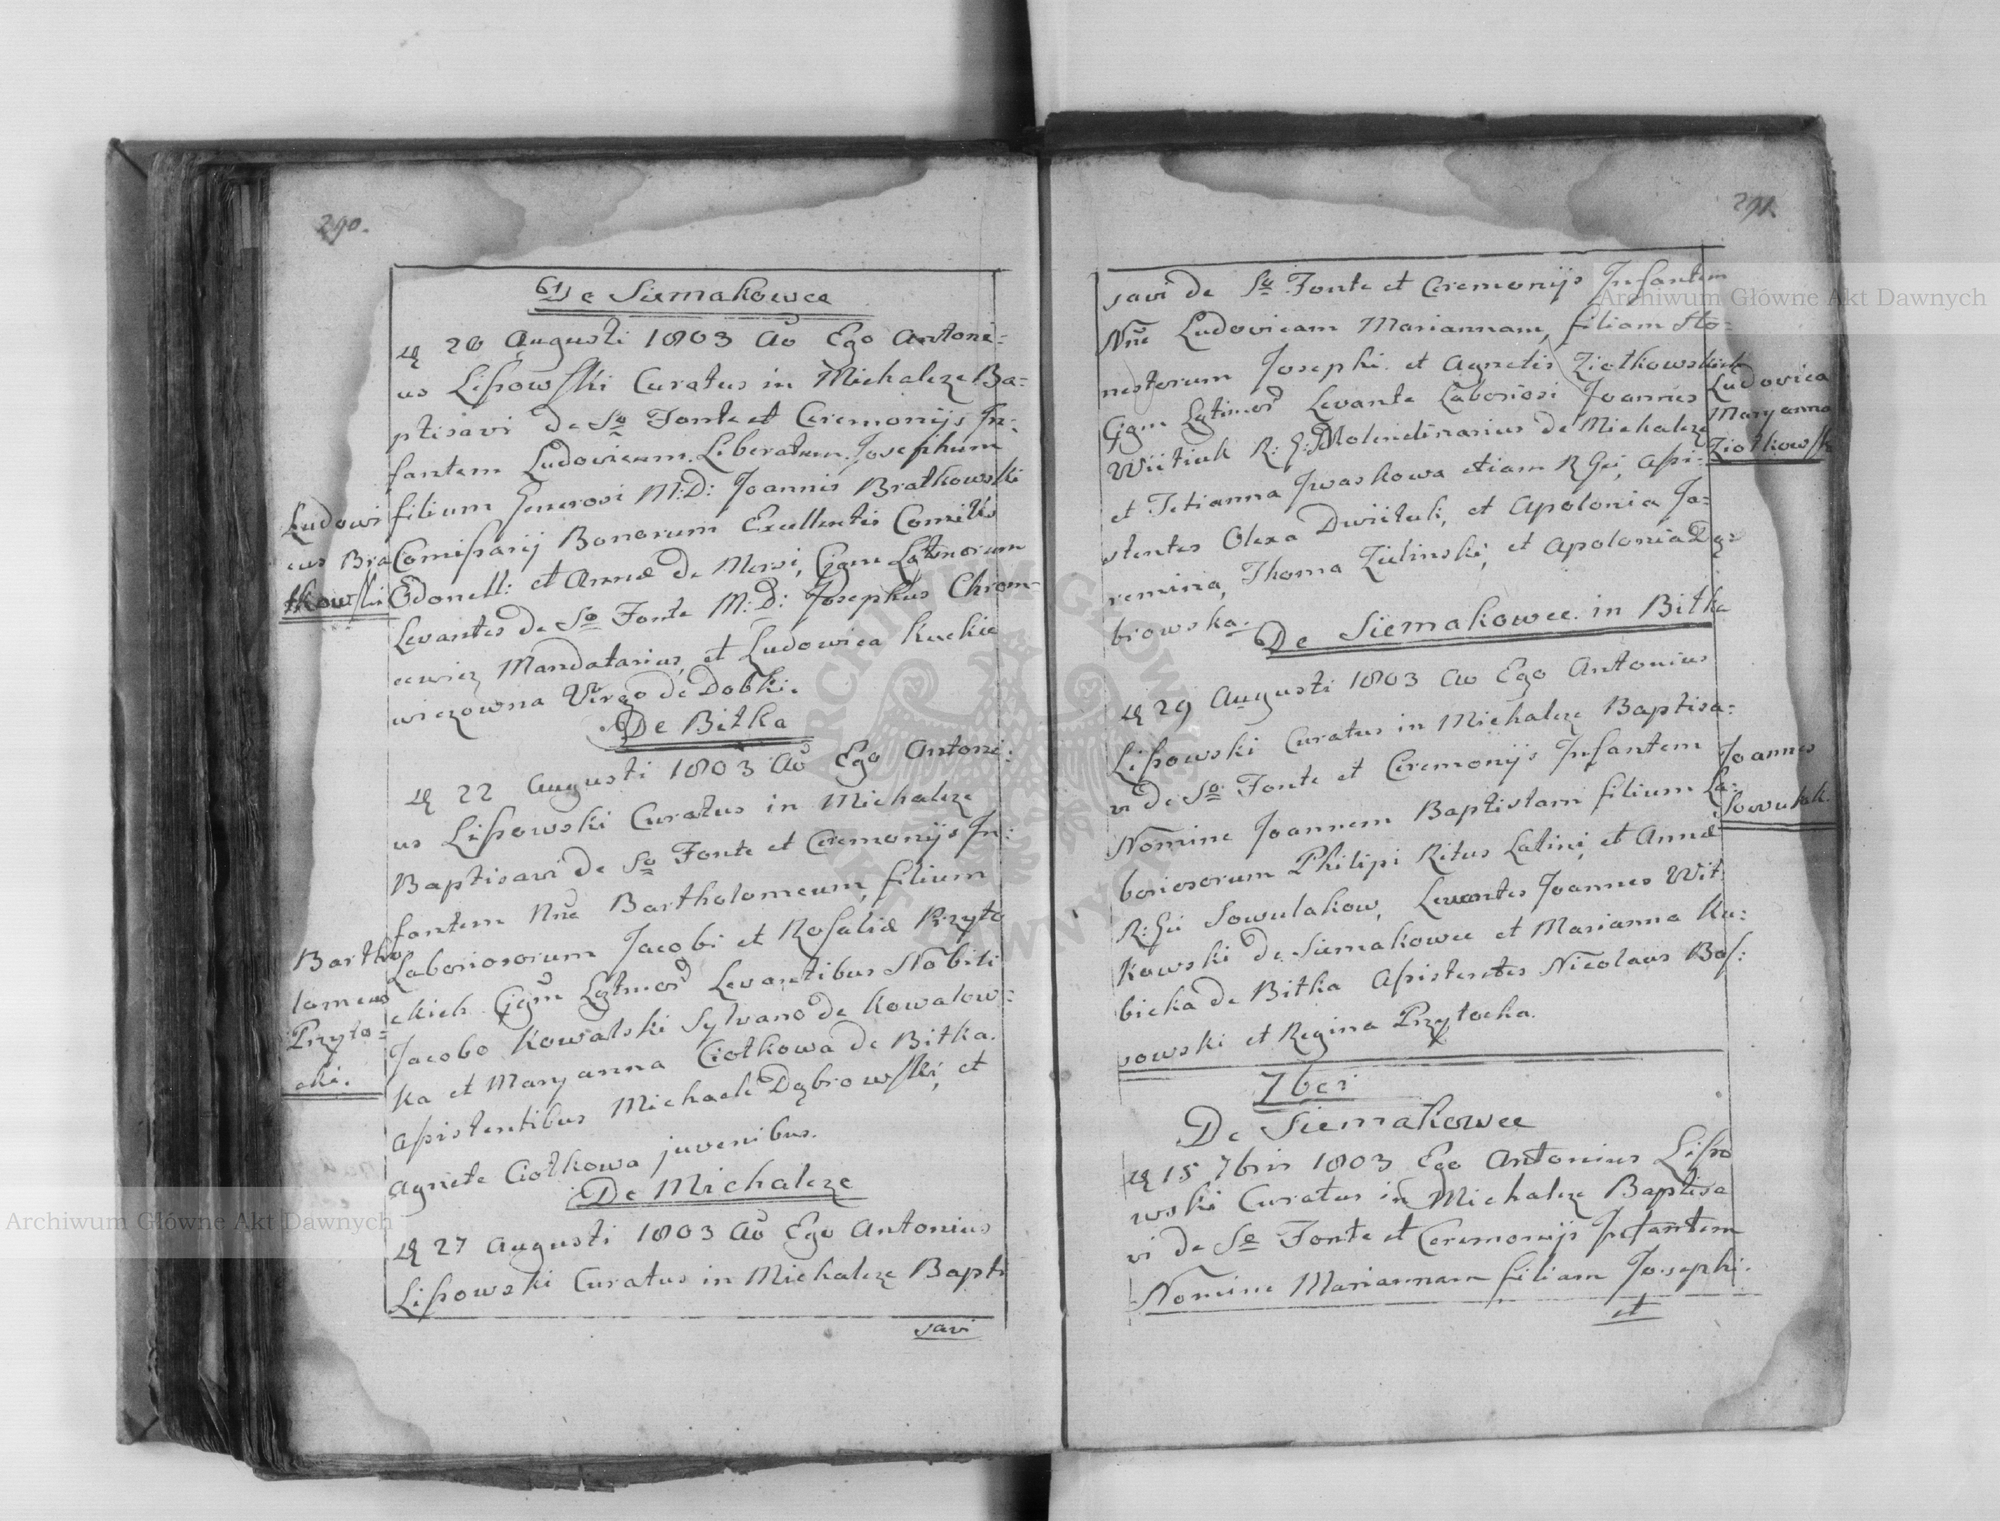 290.
De Siemakowce
20 Augusti 1803 Ao Ego Antoni=
us Lissowski Curatus in Michalcze Ba=
ptisavi de So Fonte et Ceremonijs In=
fantem Ludovicum Liberatum Josephum
filium Generosi M:D: Joannis Bratkowski
Comissarij Bonorum Excellentis Comitis
Odonell: et Annæ de Mersi, Cjgm Lgtmorum
Levantes de So Fonte M:D: Josephus Chrom=
cewicz Mandatarius, et Ludowica Kuckie
wiczowna Virgo de Dobki.
Ludowi
cus Bra
tkowski
De Bitka
22 Augusti 1803 Ao Ego Antoni:
us Lissowski Curatus in Michalcze
Baptisavi de So Fonte et Ceremonijs In:
fantem Nne Bartholomeum, filium
Laboriosorum Jacobi et Rosaliæ Przyto
ckich Cjgm Lgtmor Levantibus Nobili
Jacobo Kowalski Sylvano de Kowalow=
ka et Maryanna Ciołkowa de Bitka.
Assistentibus Michaele Dąbrowski, et
Agnete Ciołkowa juvenibus.
Bartho
lomeus
Przyto=
cki.
De Michalcze
27 Augusti 1803 Ao Ego Antonius
Lissowski Curatus in Michalcze Bapti
savi
291.
savi de So Fonte et Ceremonijs Infantem
Nne Ludovicam Mariannam, filiam Ho=
nestorum Josephi et Agnetis Ziołkowskich
Cjgm Lgtimor Levante Laboriosi Joannes
Wiitiuk R: G: Molendinarius de Michalcze
et Tetianna Jwaskowa etiam R Gci, Assi=
stentes Olexa Dwiituk, et Apolonia Ja=
remina, Thoma Zielinski, et Apolonia Dą=
browska.
Ludovica
Maryanna
Ziołkowska
De Siemakowce in Bitka
29 Augusti 1803 Ao Ego Antonius
Lissowski Curatus in Michalcze Baptisa=
vi de So Fonte et Ceremonijs Infantem
Nomine Joannem Baptistam filium La=
boriosorum Philipi Ritus Latini, et Annæ
R: Gci Sowulakow, Levantes Joannes Wit
kowski de Siemakowce et Marianna Ku=
bicka de Bitka Assistentes Nicolaus Bos:
sowski et Regina Przytocka.
Joannes
Sowulak.
7bri
De Siemakowce
15 7bris 1803 Ego Antonius Lisso
wski Curatus in Michalcze Baptisa
vi de So Fonte et Ceremonijs Infantem
Nomine Mariannam filiam Josephi.
et
Archiwum Główne Akt Dawnych
Archiwum Główne Akt Dawnych